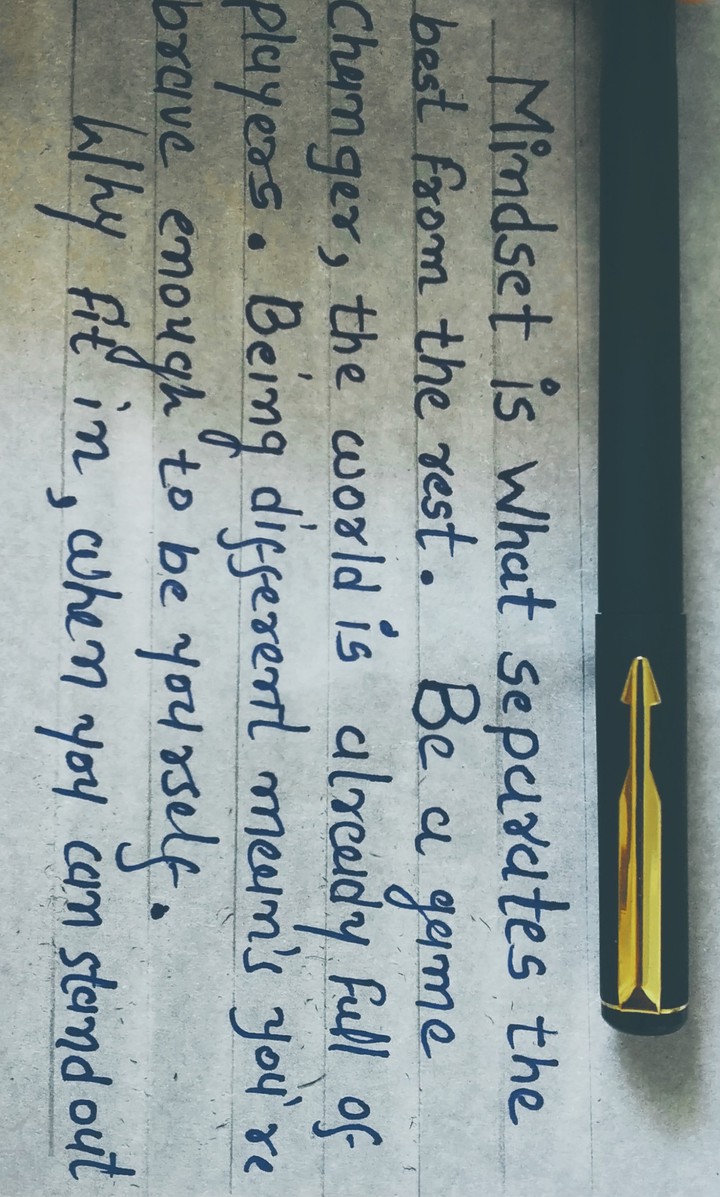 Mindset is what separates the
best from the rest. Be a game
Changer, the world is already full of
players. Being different mean's you're
brave enough to be yourself.
Why fit in, when you can stand out